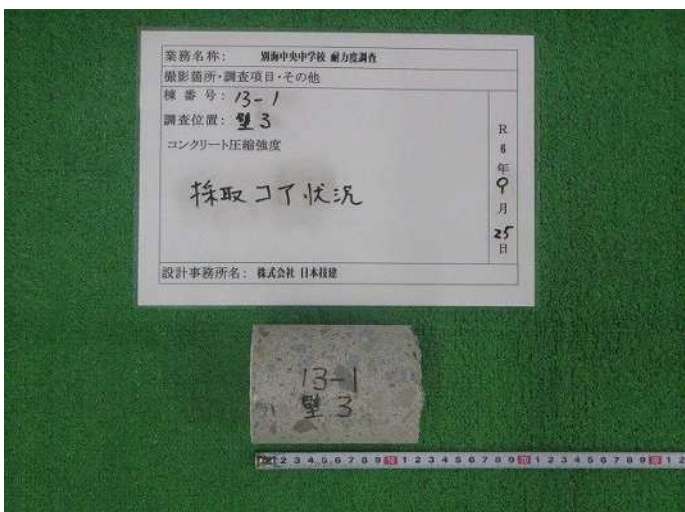 業務名称： 別海中央中学校 耐力度調査
撮影箇所・調査項目・その他
棟番号：13-1
調査位置：壁3
コンクリート圧縮強度
採取コア状況
R6年9月25日
設計事務所名： 株式会社 日本技建
13-1
壁3
1 2 3 4 5 6 7 8 9 10 1 2 3 4 5 6 7 8 9 20 1 2 3 4 5 6 7 8 9 30 1 2